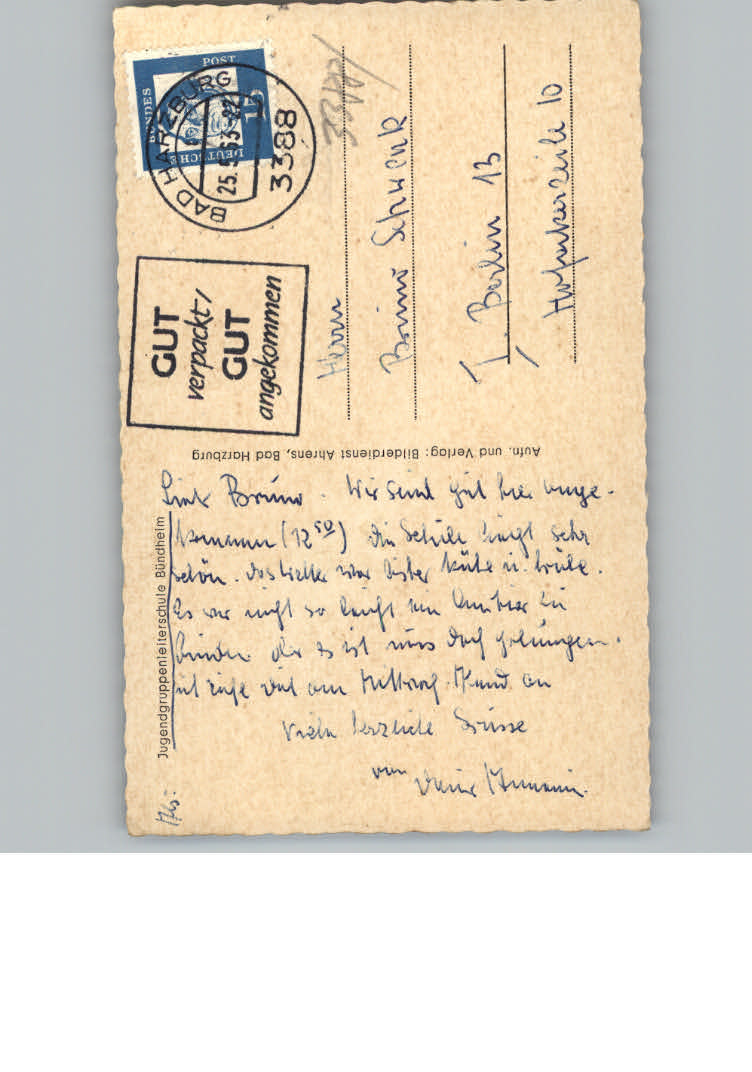 Abs: Jugendgruppenleiterschule Bündheim
Liebe Bruno. Wir sind gut hier ange-
kommen (12⁵⁰) Die Schule liegt sehr
schön. Das Wetter war bisher kühl u. trübe.
Es war nicht so leicht ein
finden aber es ist uns doch gelungen.
am Mittwoch Abend an
Viele herzliche Grüsse
von
Aufn. und Verlag: Bilderdienst Ahrens, Bad Harzburg
GUT
verpackt/
GUT
angekommen
BAD HARZBURG
25. 63
3388
DEUTSCHE
BUNDES
POST
15
Herrn
Bruno Schwenk
1 Berlin 13
10